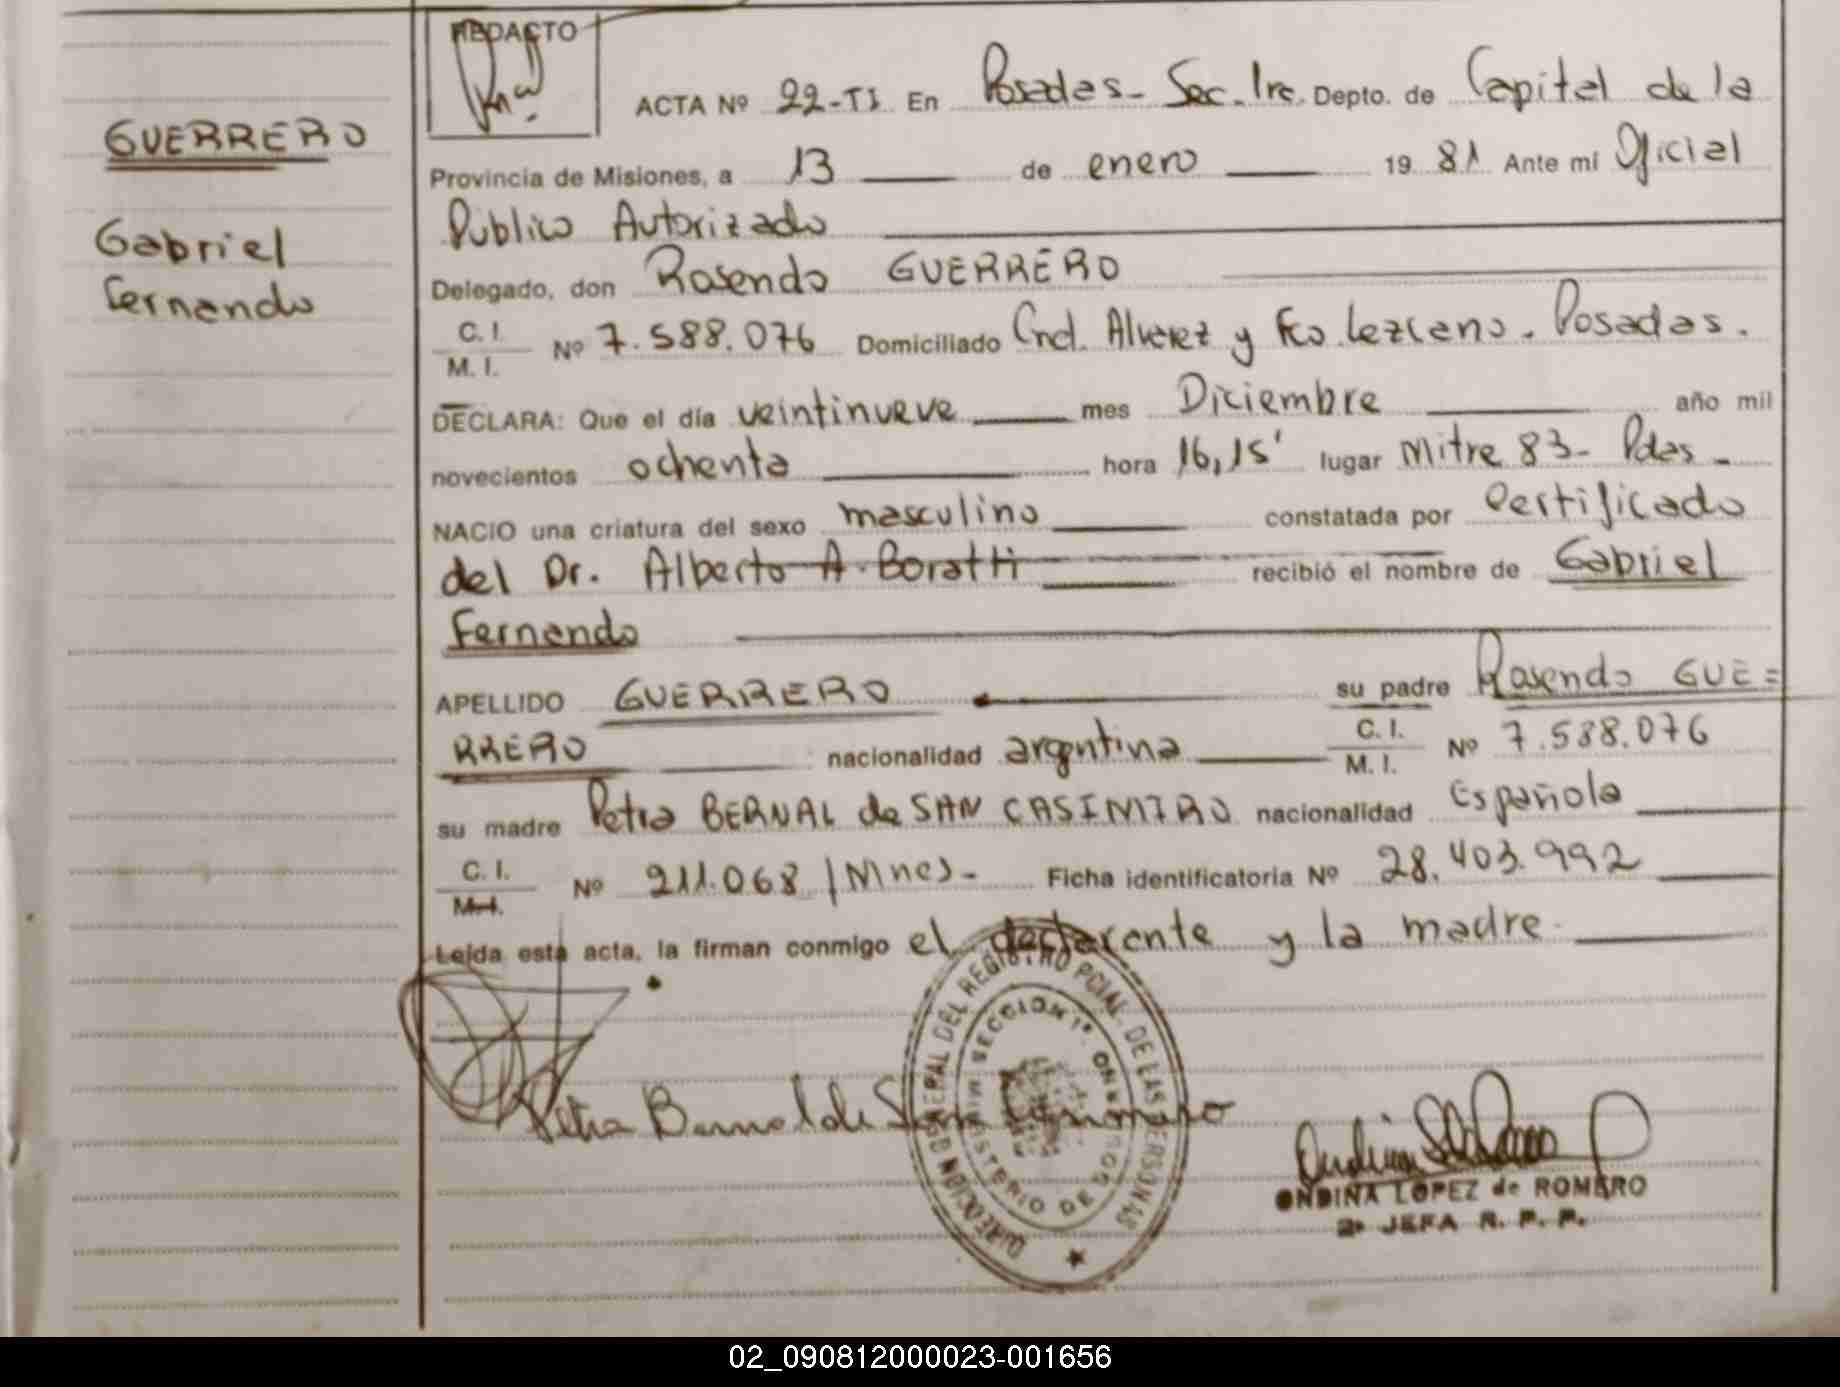 REDACTO
GUERRERO
Gabriel
Fernando
ACTA Nº 22-TI En Posadas - Sec. 1ra. Depto. de Capital de la
Provincia de Misiones, a 13 de enero 1981 Ante mí Oficial
Público Autorizado
Delegado, don Rosendo GUERRERO
C. I.
M. I. Nº 7.588.076 Domiciliado Cnel. Alvarez y Fco. Lezcano. Posadas.
DECLARA: Que el día veintinueve mes Diciembre año mil
novecientos ochenta hora 16,15' lugar Mitre 83 - Pdas -
NACIO una criatura del sexo masculino constatada por Certificado
del Dr. Alberto A. Boratti recibió el nombre de Gabriel
Fernando
APELLIDO GUERRERO su padre Rosendo GUE=
RRERO nacionalidad argentina C. I. M. I. Nº 7.588.076
su madre Petra BERNAL de SAN CASIMIRO nacionalidad Española
C. I.
M. I. Nº 211.068 / Mnes - Ficha identificatoria Nº 28.403.992
Leída esta acta, la firman conmigo el declarente y la madre.
Petra Bernal de San Casimiro
DIRECCION GENERAL DEL REGISTRO PCIAL. DE LAS PERSONAS
SECCION 1ª
MINISTERIO DE GOBIERNO
ONDINA LOPEZ de ROMERO
2ª JEFA R. P. P.
02_090812000023-001656